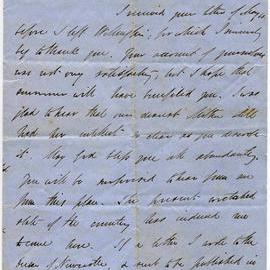 I received your letter of
before I left Wellington, for which I sincerely
thank you. Your account of yourselves
was not very satisfactory, but I hope that
summer will have benefited you. I was
glad to hear that our dearest Mother still
had her intellect as clear as you describe
it. May God bless you all abundantly.
You will be surprised to hear from me
from this place. The present wretched
state of the country has induced me
to come here. If a letter I wrote to the
Dean of Newcastle & sent to be published in